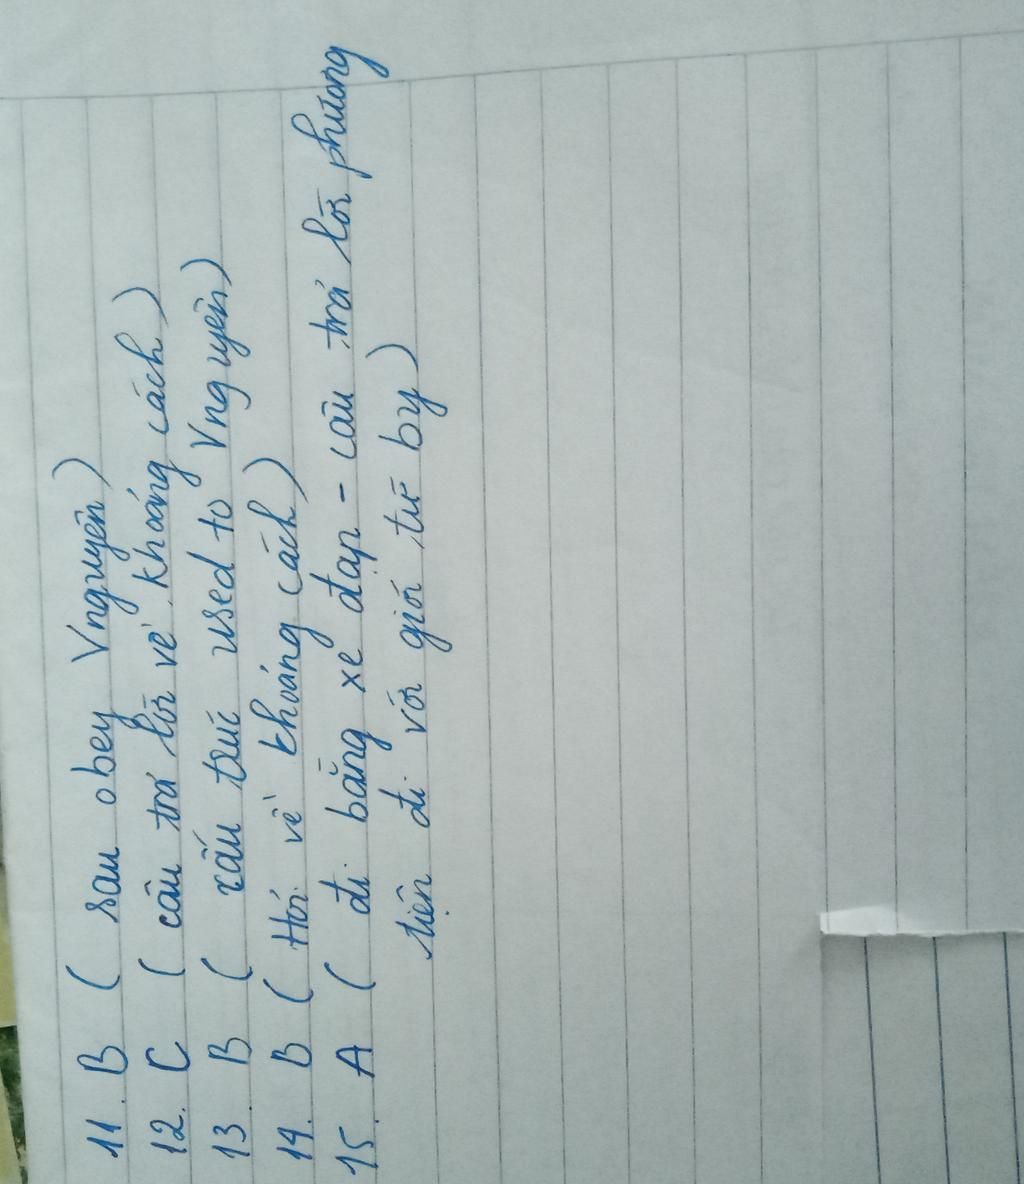 11. B ( sau obey Vnguyên)
12. C ( câu trả lời về khoảng cách)
13 B ( cấu trúc used to Vnguyên)
14. B ( Hỏi về khoảng cách)
15. A ( đi bằng xe đạp - câu trả lời phương
tiện đi với giới từ by)